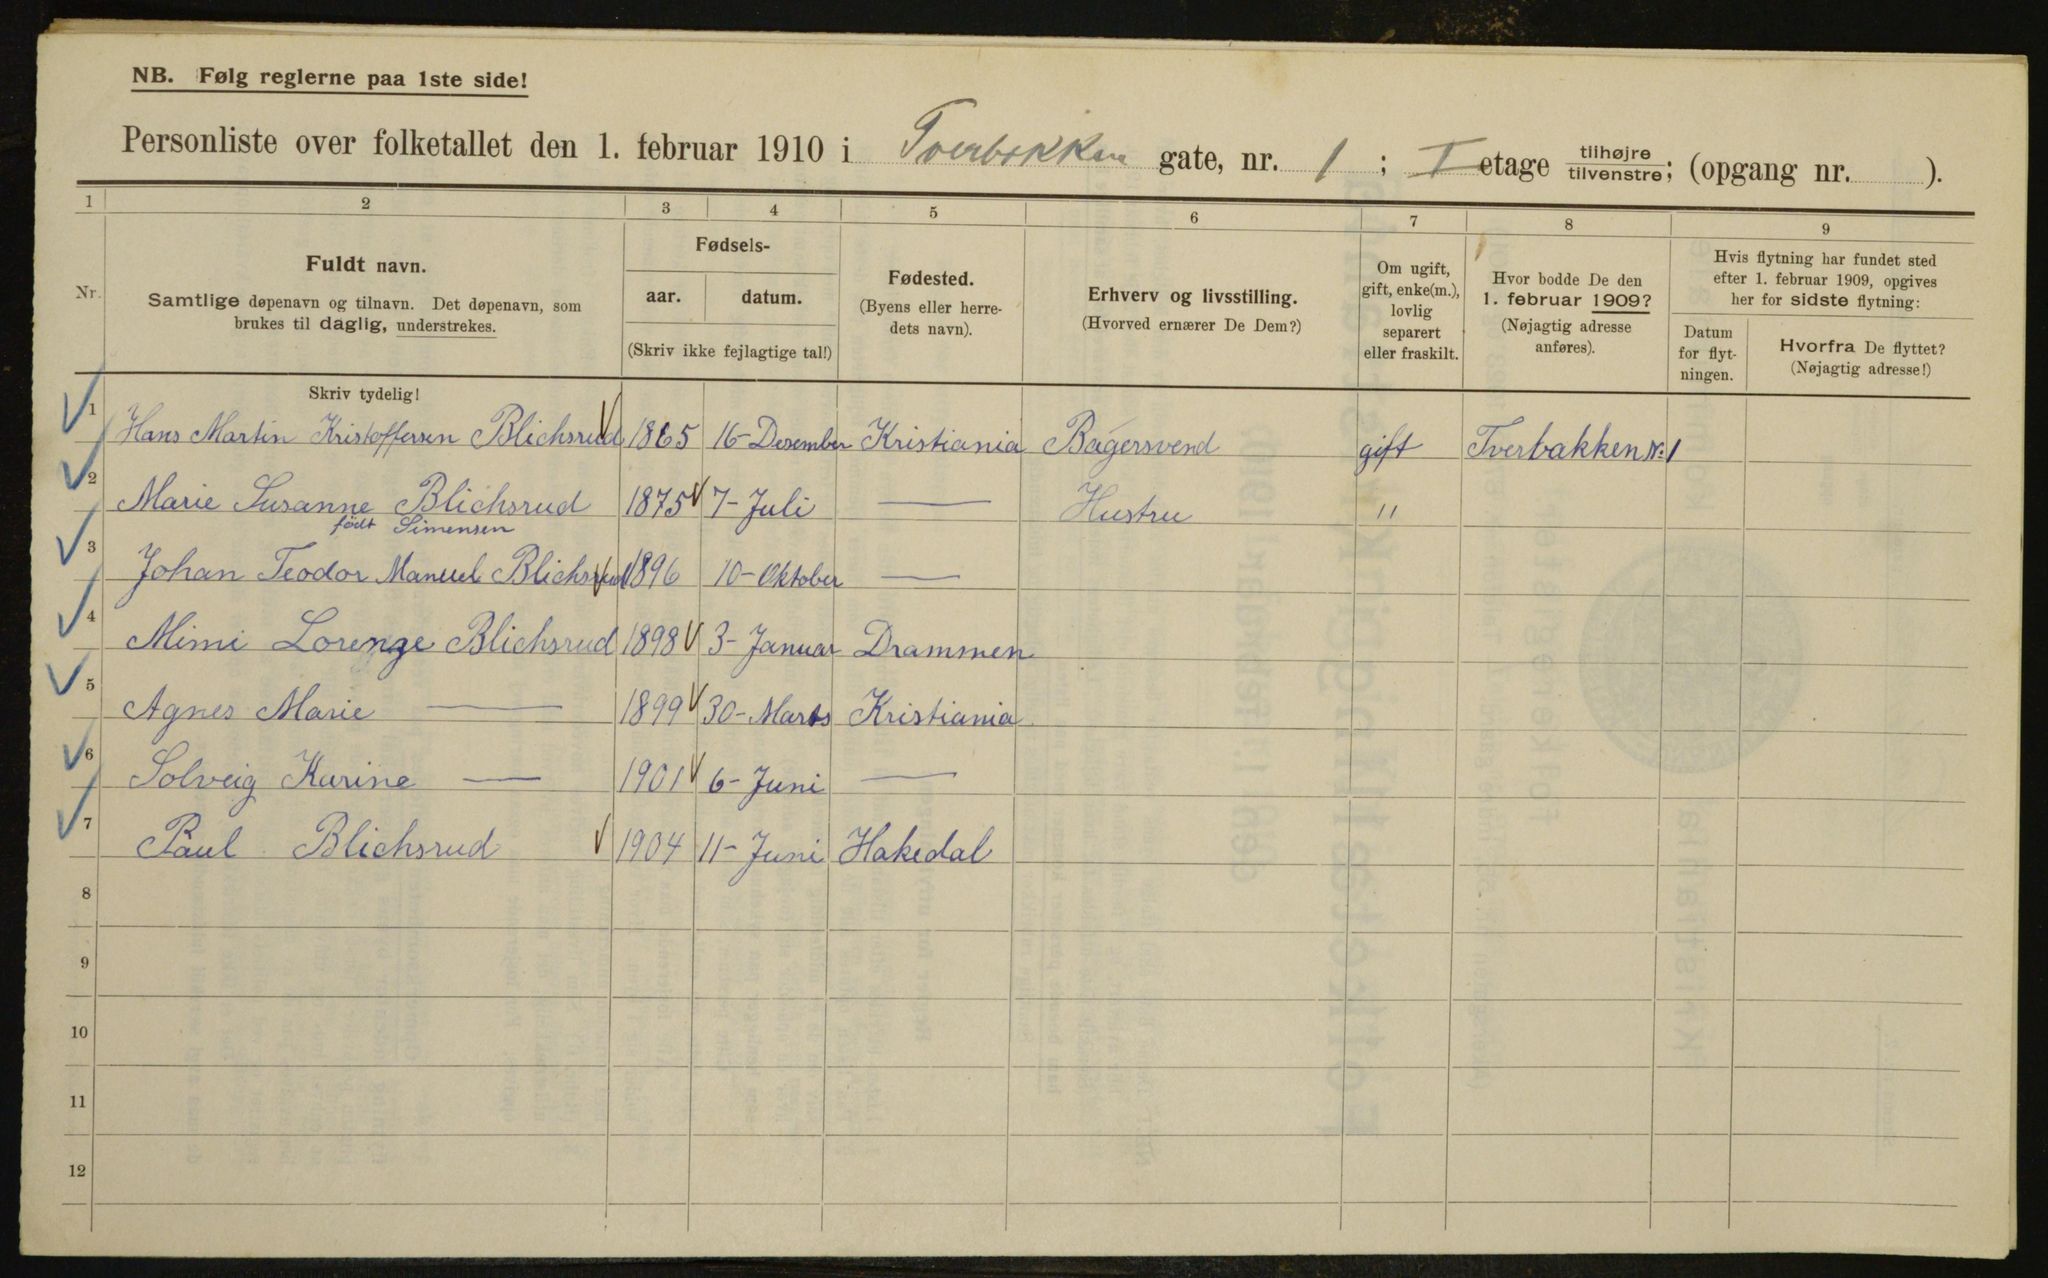 NB. Følg reglerne paa 1ste side!
Personliste over folketallet den 1. februar 1910 i Tverbakken gate, nr. 1 ; I etage tilhøjre tilvenstre; (opgang nr. ).
1 2 3 4 5 6 7 8 9
Nr.
Fuldt navn.
Samtlige døpenavn og tilnavn. Det døpenavn, som
brukes til daglig, understrekes.
Skriv tydelig!
Fødsels-
aar. datum.
(Skriv ikke fejlagtige tal!)
Fødested.
(Byens eller herre-
dets navn).
Erhverv og livsstilling.
(Hvorved ernærer De Dem?)
Om ugift,
gift, enke(m.),
lovlig
separert
eller fraskilt.
Hvor bodde De den
1. februar 1909?
(Nøjagtig adresse
anføres).
Hvis flytning har fundet sted
efter 1. februar 1909, opgives
her for sidste flytning:
Datum
for flyt-
ningen.
Hvorfra De flyttet?
(Nøjagtig adresse!)
1 Hans Martin Kristoffersen Blichsrud 1865 16-Desember Kristiania Bagersvend gift Tverbakken Nr. 1
2 Marie Susanne Blichsrud 1875 7-Juli — Hustru "
født Simensen
3 Johan Teodor Manuel Blichsrud 1896 10-Oktober —
4 Mimi Lorenze Blichsrud 1898 3-Januar Drammen
5 Agnes Marie — 1899 30-Marts Kristiania
6 Solveig Karine — 1901 6-Juni —
7 Paul Blichsrud 1904 11-Juni Hakedal
8
9
10
11
12